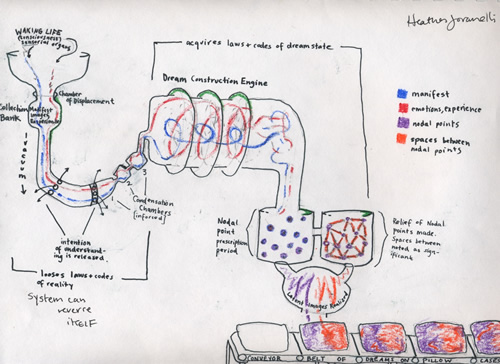 Heather Joranelli
WAKING LIFE
(consciousness)
sensorial organs
acquires laws + codes of dreamstate
Dream Construction Engine
Chamber
of Displacement
Collection
Bank
Manifest
images
Experience
manifest
emotions, experience
nodal points
spaces between
nodal points
vacuum
1
2
3
Condensation
Chambers
[inforced]
intention
of understand-
ing is released.
looses laws + codes
of reality
System can
reverse
itself
Nodal
point
prescription
period
Relief of Nodal
Points made.
Spaces between
noted as sign-
ificant
Latent Images Realized
CONVEYOR BELT OF DREAMS ON PILLOW CASE